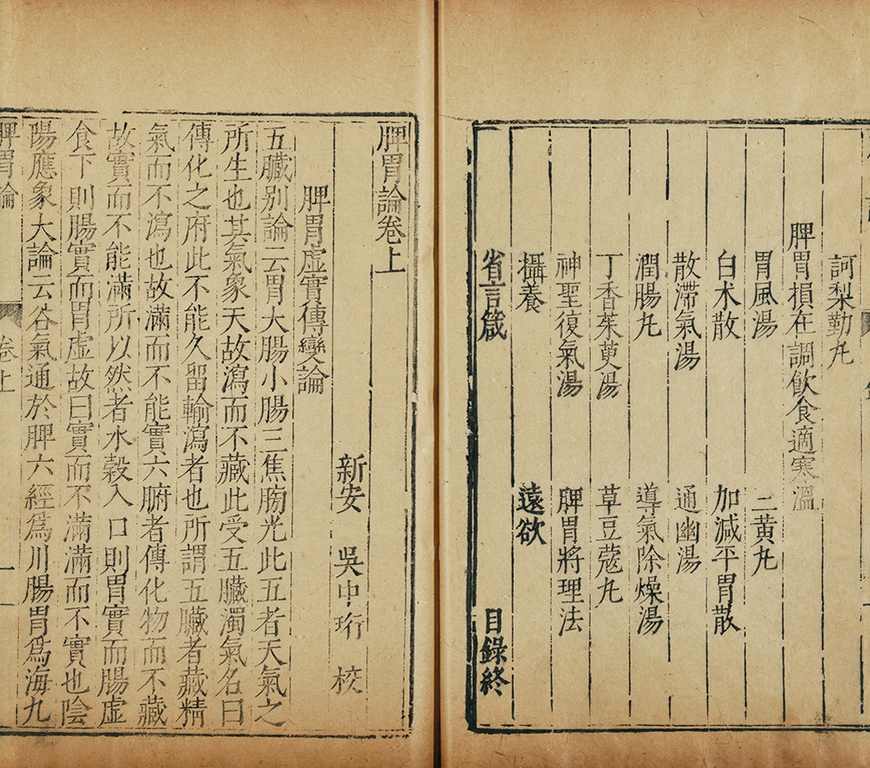 訶梨勒丸
脾胃損在調飲食適寒溫
胃風湯　二黃丸
白朮散　加減平胃散
散滯氣湯　通幽湯
潤腸丸　導氣除燥湯
丁香茱萸湯　草豆蔻丸
神聖復氣湯　脾胃將理法
攝養　遠欲
省言箴　目錄終
脾胃論卷上
新安　吳中珩　校
脾胃虛實傳變論
五臟别論云胃大腸小腸三焦膀光此五者天氣之
所生也其氣象天故瀉而不藏此受五臟濁氣名曰
傳化之府此不能久留輸瀉者也所謂五臟者藏精
氣而不瀉也故滿而不能實六腑者傳化物而不藏
故實而不能滿所以然者水穀入口則胃實而腸虛
食下則腸實而胃虛故曰實而不滿滿而不實也陰
陽應象大論云谷氣通於脾六經為川腸胃為海九
脾胃論　卷上　一